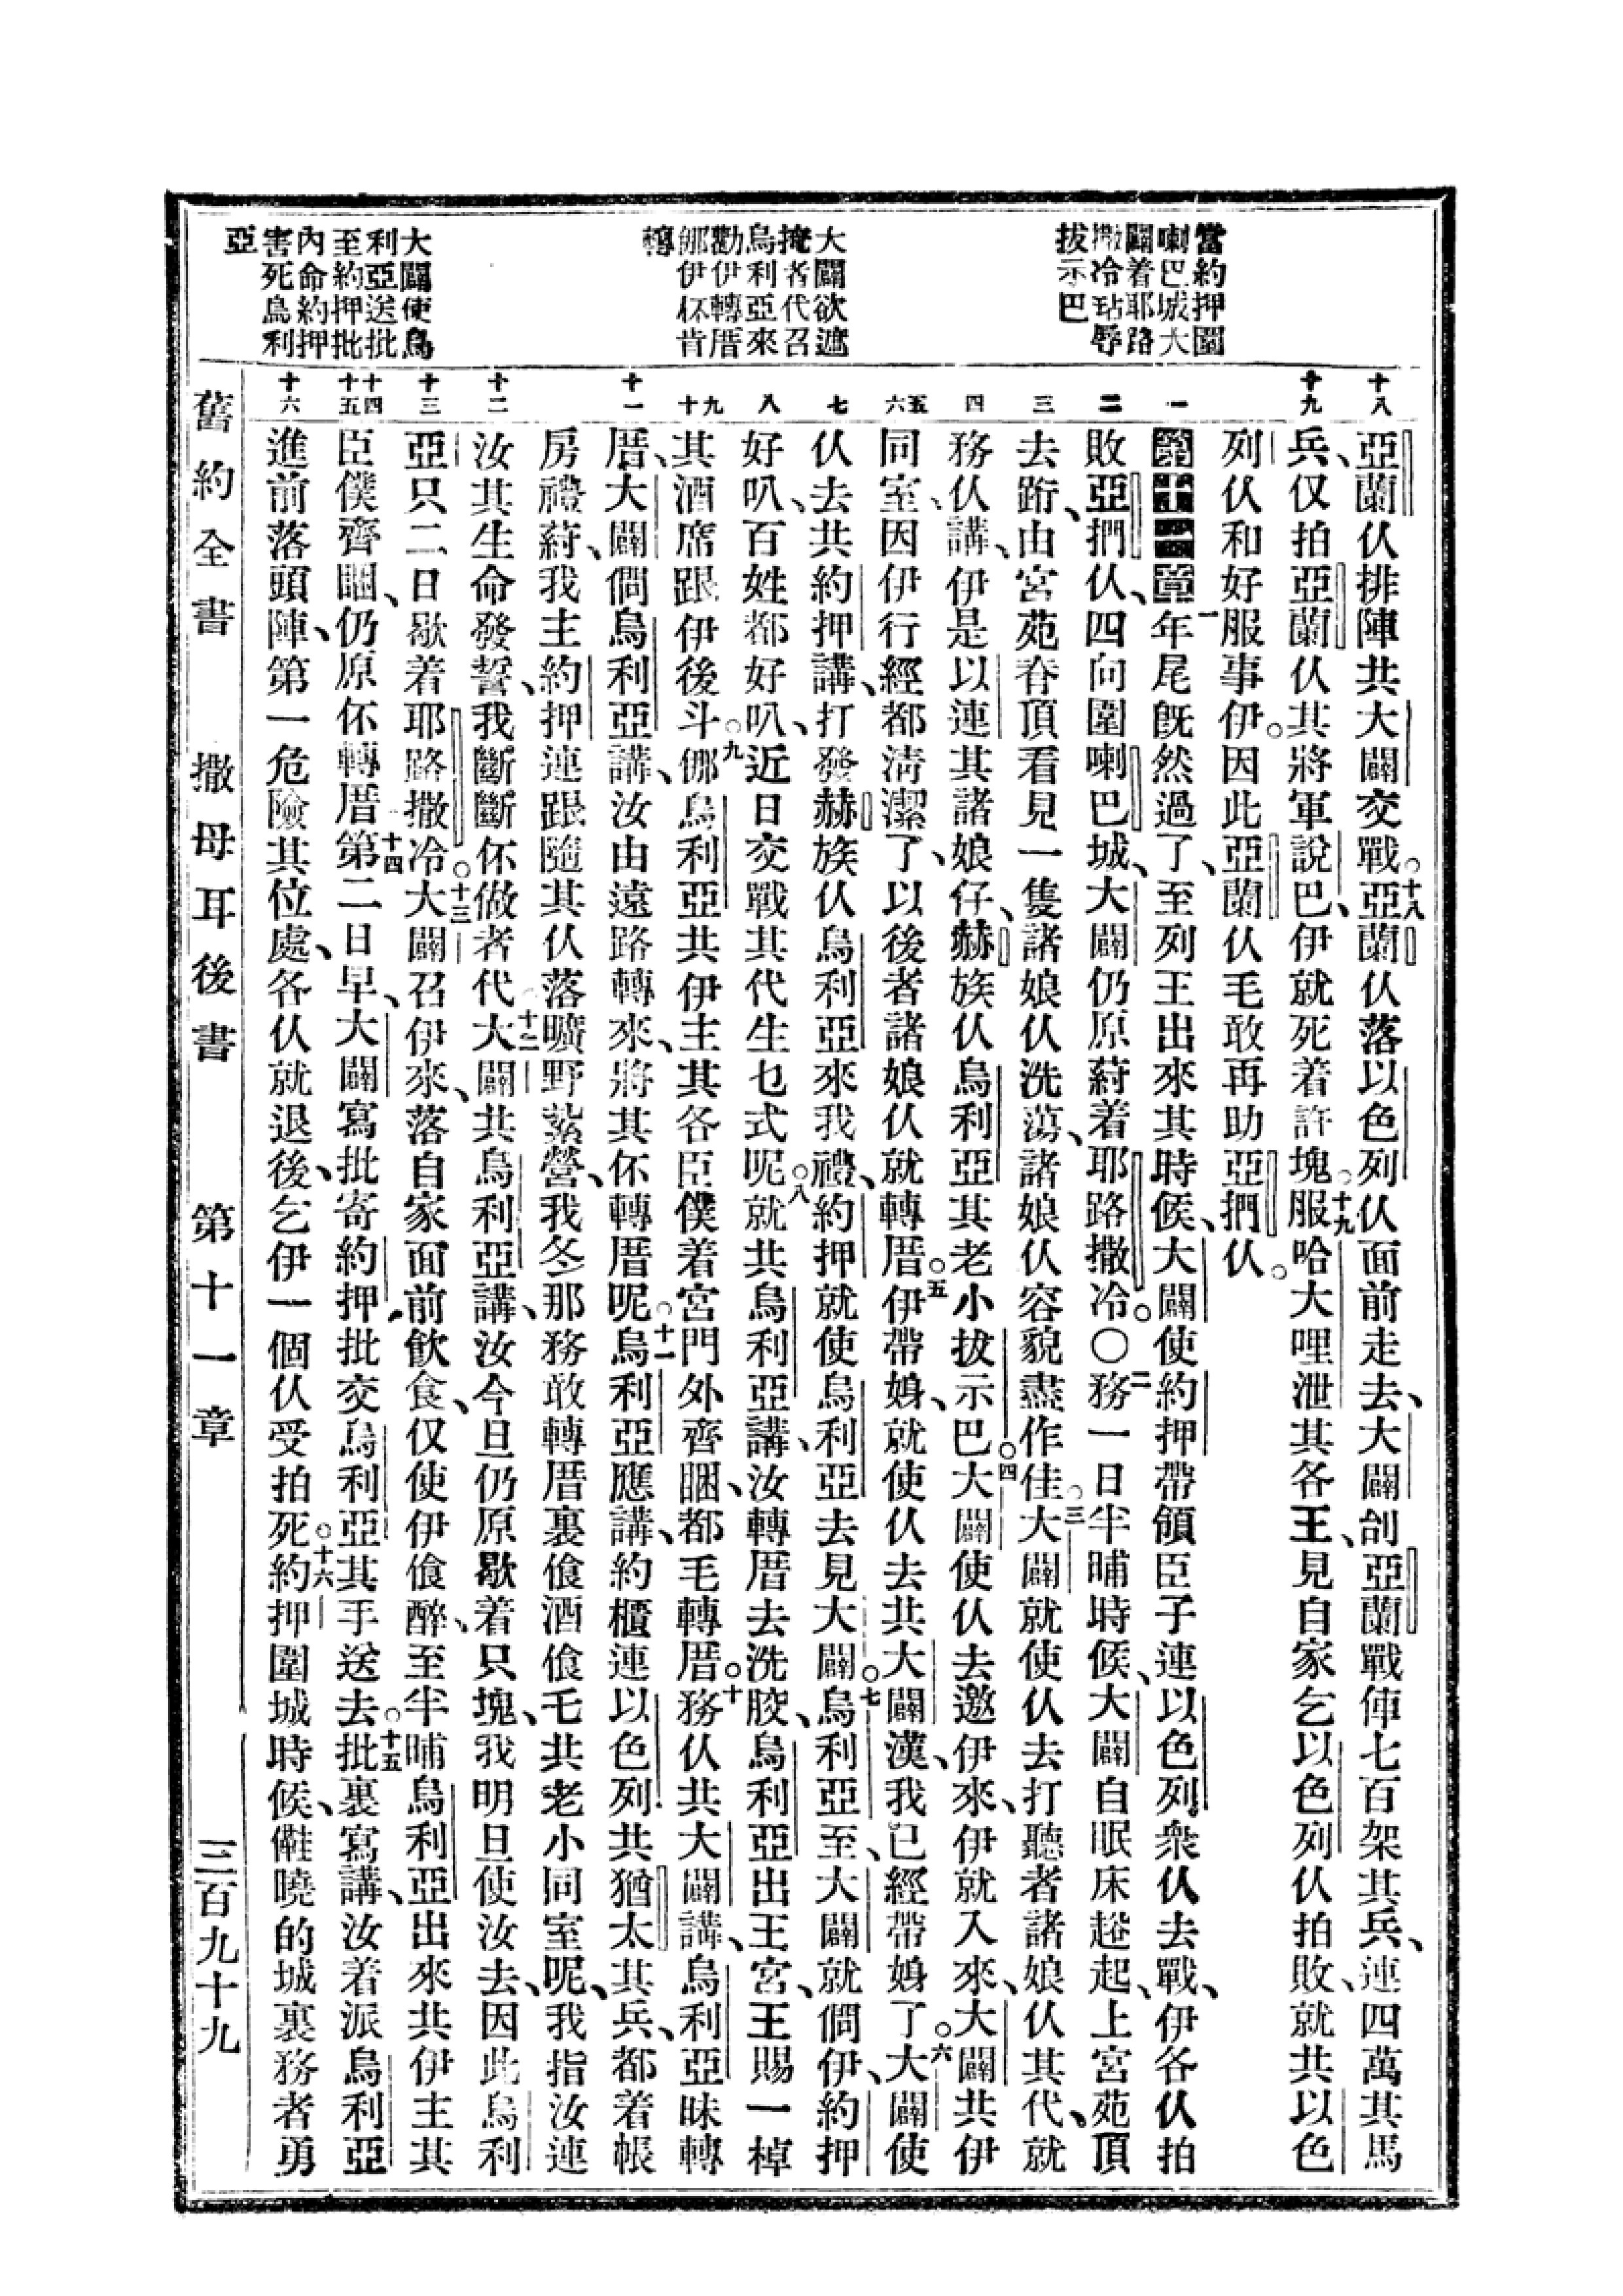 當約押圍
喇巴城大
闢着耶路
撒冷玷辱
拔示巴
大闢欲遮
掩者代召
烏利亞來
勸伊轉厝
𨚫伊伓肯
轉
大闢使烏
利亞送批
至約押批
內命約押
害死烏利
亞
十八
十九
一
二
三
四
五
六
七
八
九
十
十一
十二
十三
十四
十五
十六
亞蘭仈排陣共大闢交戰。十八亞蘭仈落以色列仈面前走去、大闢刣亞蘭戰俥七百架其兵、連四萬其馬
兵、仅拍亞蘭仈其將軍說巴、伊就死着許塊。十九服哈大哩泄其各王、見自家乞以色列仈拍敗、就共以色
列仈和好服事伊。因此亞蘭仈毛敢再助亞捫仈。
第十一章一年尾旣然過了、至列王出來其時候、大闢使約押帶領臣子連以色列衆仈去戰、伊各仈拍
敗亞捫仈、四向圍喇巴城、大闢仍原䓁着耶路撒冷。〇二務一日半晡時候、大闢自眠床趒起、上宮苑頂
去跲、由宮苑脊頂看見一隻諸娘仈洗蕩、諸娘仈容貌盡作佳。三大闢就使仈去打聽者諸娘仈其代、就
務仈講、伊是以連其諸娘仔、赫族仈烏利亞其老小拔示巴。四大闢使仈去邀伊來、伊就入來、大闢共伊
同室、因伊行經都淸潔了、以後者諸娘仈就轉厝。五伊帶㛂、就使仈去共大闢漢、我已經帶㛂了。六大闢使
仈去共約押講、打發赫族仈烏利亞來我禮、約押就使烏利亞去見大闢。七烏利亞至、大闢就僴伊、約押
好叭、百姓都好叭、近日交戰其代生乜式呢。八就共烏利亞講、汝轉厝去洗骹、烏利亞出王宮、王賜一棹
其酒席跟伊後斗。九𨚫烏利亞共伊主其各臣僕着宮門外齊睏、都毛轉厝。十務仈共大闢講、烏利亞昧轉
厝、大闢僴烏利亞講、汝由遠路轉來、將其伓轉厝呢。十一烏利亞應講、約櫃連以色列共猶太其兵、都着帳
房禮䓁、我主約押連跟隨其仈落曠野紮營、我冬那務敢轉厝裏飺酒飺毛共老小同室呢、我指汝連
汝其生命發誓、我斷斷伓做者代。十二大闢共烏利亞講、汝今旦仍原歇着只塊、我明旦使汝去、因此烏利
亞只二日歇着耶路撒冷。十三大闢召伊來、落自家面前飮食、仅使伊飺醉、至半晡烏利亞出來共伊主其
臣僕齊睏、仍原伓轉厝。十四第二日早、大闢寫批寄約押、批交烏利亞其手送去。十五批裏寫講、汝着派烏利亞
進前落頭陣、第一危險其位處、各仈就退後、乞伊一個仈受拍死。十六約押圍城時候、儺曉的城裏務者勇
舊約全書　撒母耳後書　第十一章　三百九十九